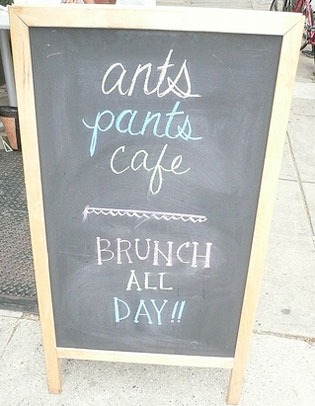 ants
pants
cafe
BRUNCH
ALL
DAY!!